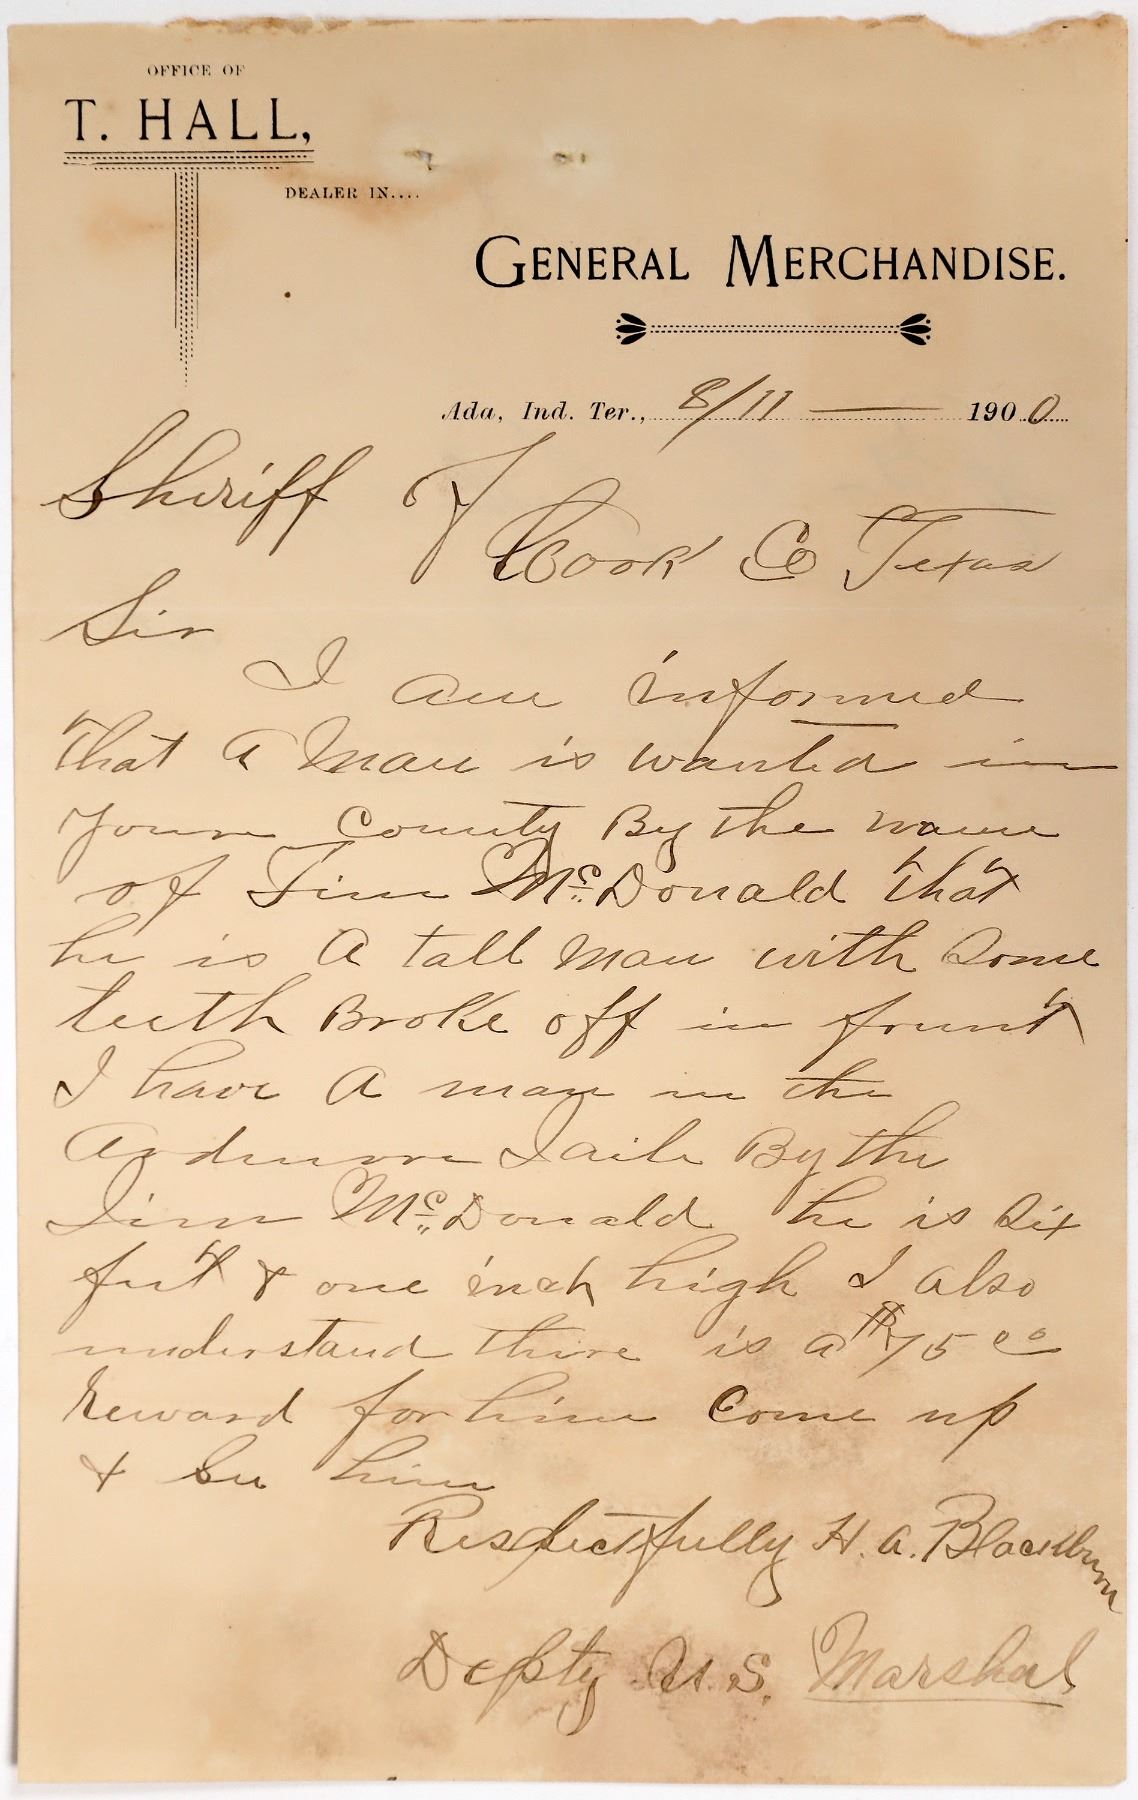 OFFICE OF
T. HALL,
DEALER IN....
GENERAL MERCHANDISE.
Ada, Ind. Ter., 8/11 — 1900
Sheriff of
Cook Co Texas
Sir
I am informed
that a Man is wanted in
youre County By the name
of Jim McDonald that
he is A tall man with Some
teeth Broke off in frunt
I have A man in the
Ardmore Jaile By the
Jim McDonald he is Six
fut & one inch high I also
understand there is a $75 00
Reward for him Come up
& See him
Respectfully H. A. Blackburn
Depty U. S. Marshal